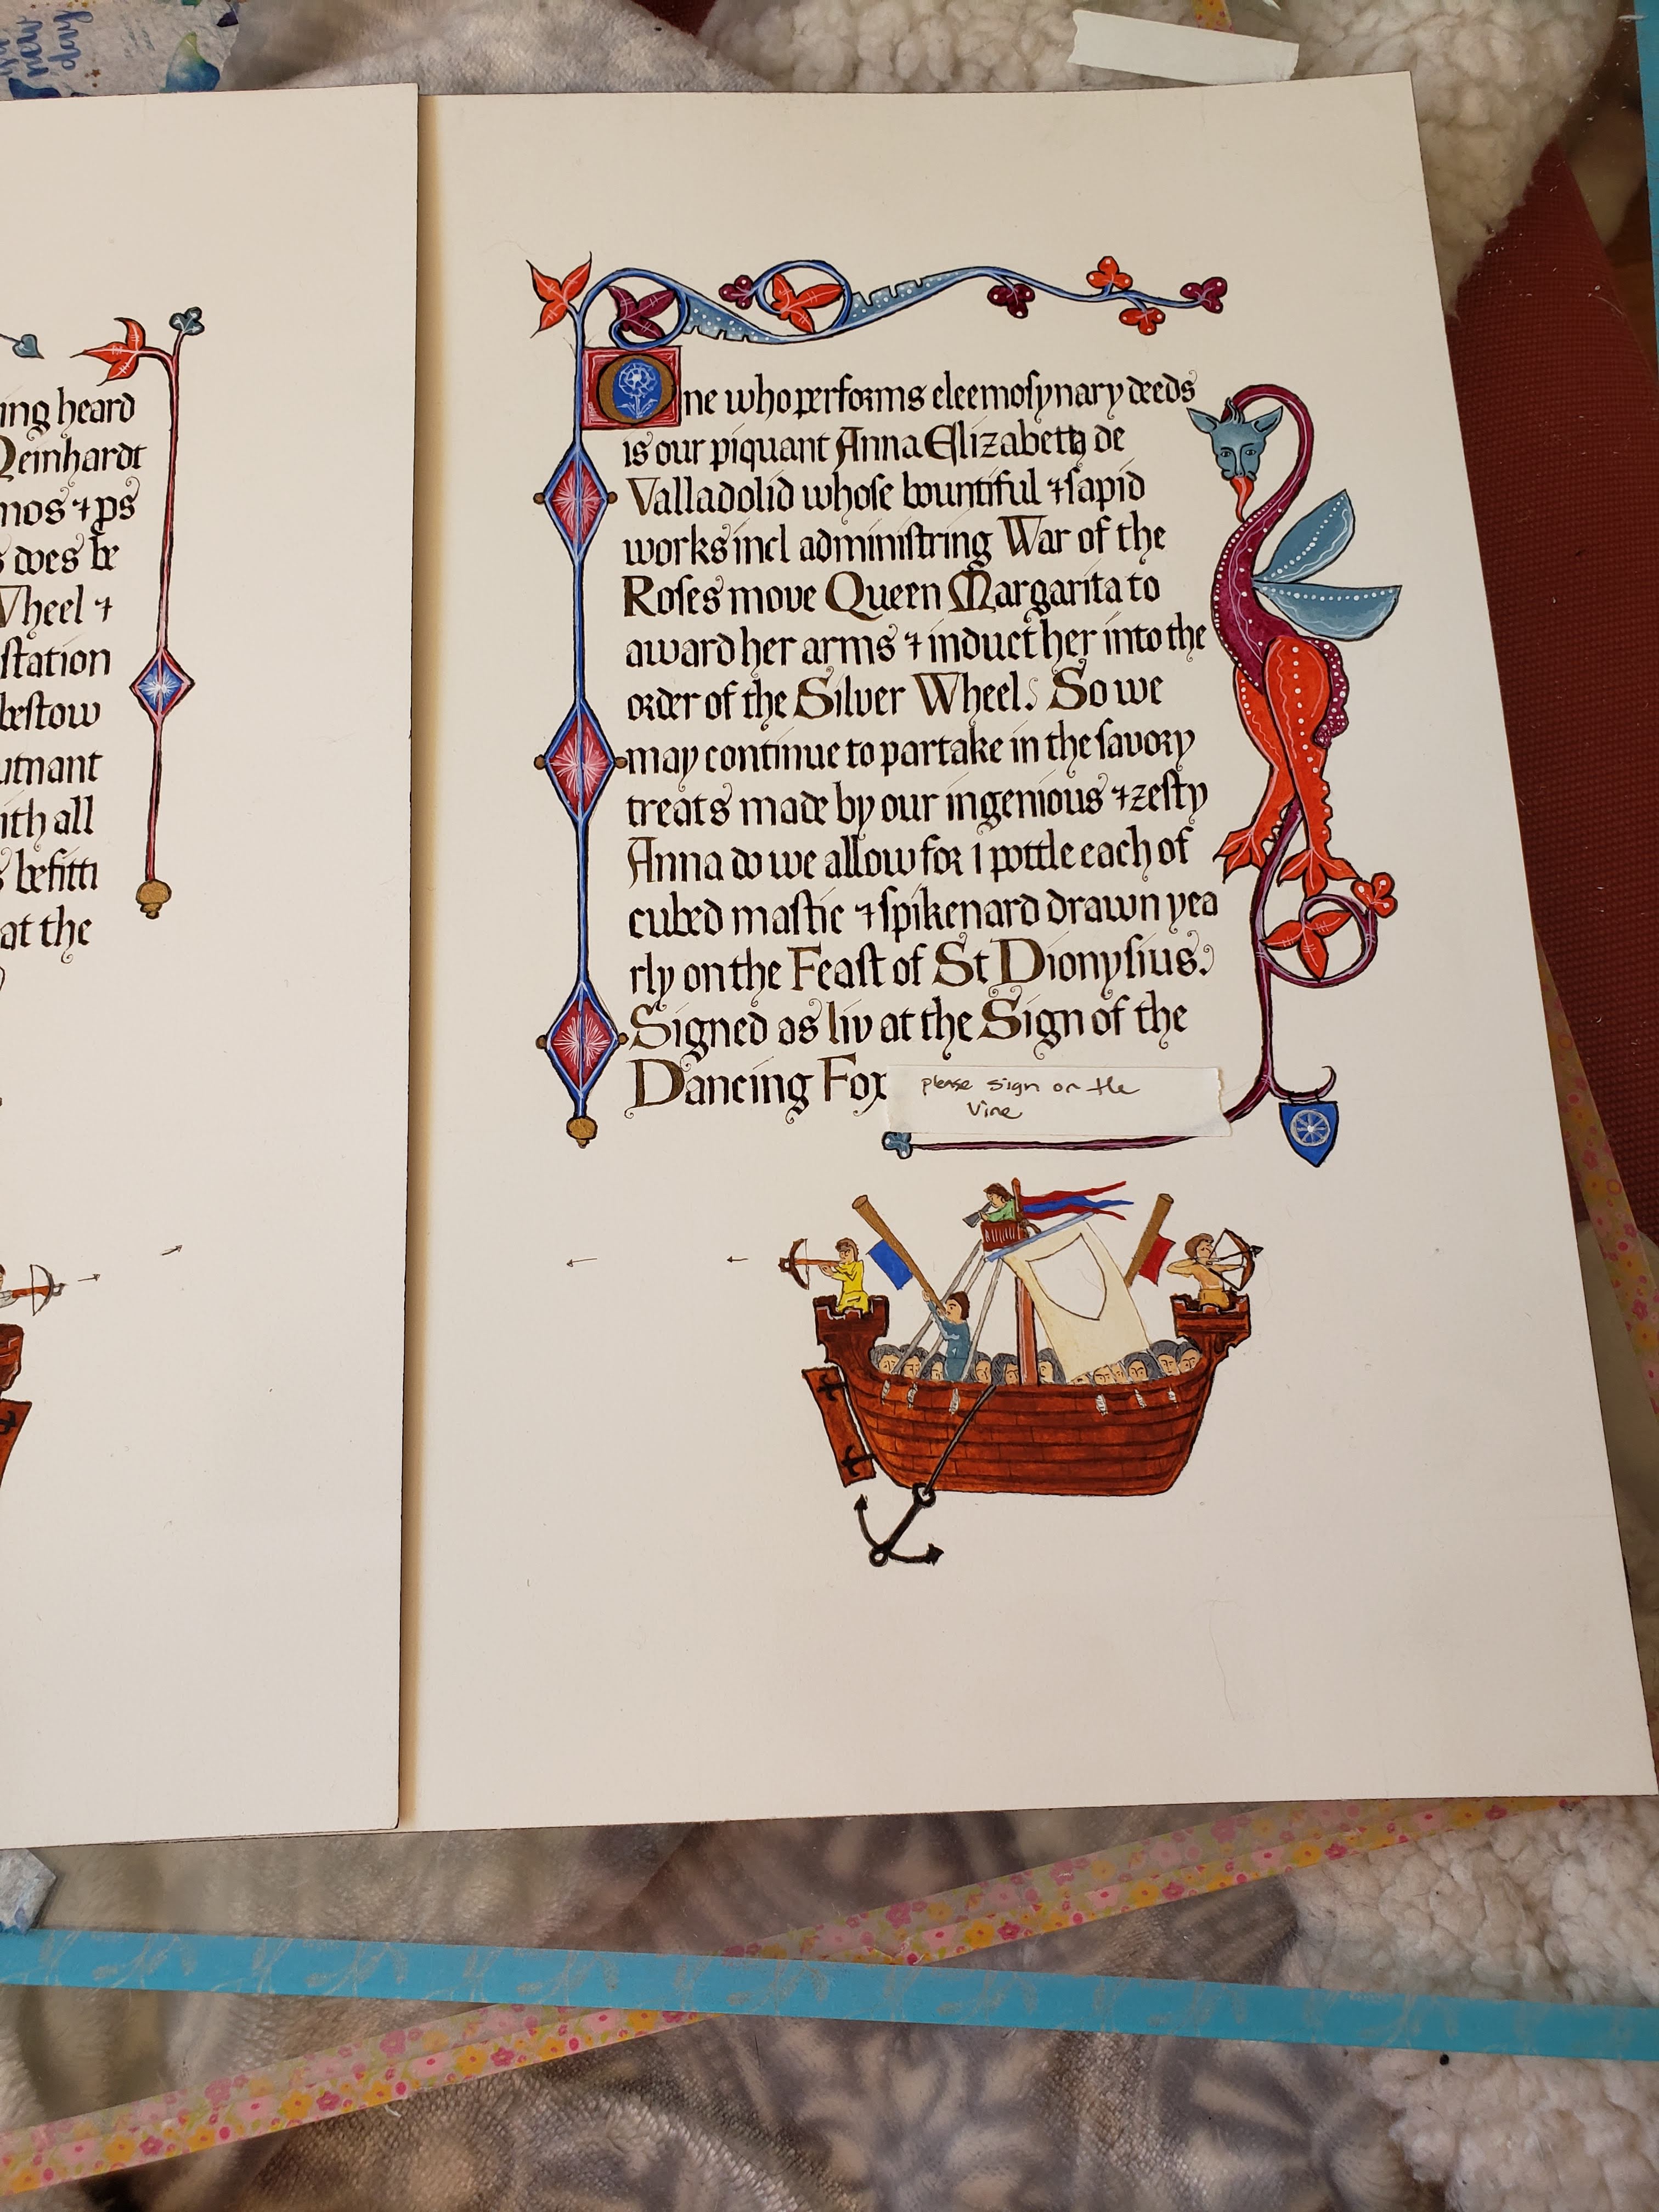 new
day
ing heard
Reinhardt
mos & ps
s does be
Wheel &
station
bestow
utnant
ith all
s befitti
at the
One who performs eleemosynary deeds
is our piquant Anna Elizabeth de
Valladolid whose bountiful & sapid
works incl administring War of the
Roses move Queen Margarita to
award her arms & induct her into the
order of the Silver Wheel. So we
may continue to partake in the savory
treats made by our ingenious & zesty
Anna do we allow for 1 pottle each of
cubed mastic & spikenard drawn yea
rly on the Feast of St Dionysius.
Signed as liv at the Sign of the
Dancing Fox
please sign on the
vine